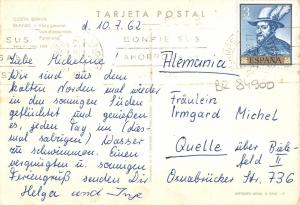 TARJETA POSTAL
COSTA BRAVA
d. 10.7.62
CONFIE SUS
SUS
AHORROS
3
PTAS
ESPAÑA
Alemania
BZ 84900
Liebe Michelina,
Wir sind aus dem
kalten Norden mal wieder
in den sonnigen Süden
geflüchtet und genießen
es, jeden Tag im (dies-
mal salzigen) Wasser
zu schwimmen. Einen
vergnügten u. sonnigen
Feriengruß senden Dir
Helga und Inge
Fräulein
Irmgard Michel
Quelle über Biele-
feld II
Osnabrücker Str.